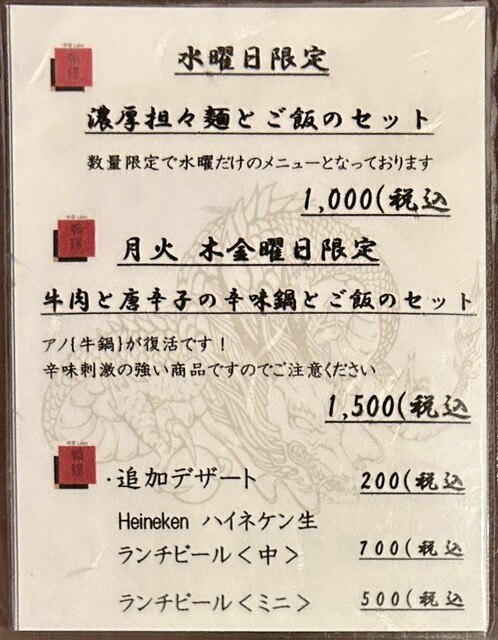 水曜日限定
濃厚担々麺とご飯のセット
数量限定で水曜だけのメニューとなっております
1,000(税込
月火 木金曜日限定
牛肉と唐辛子の辛味鍋とご飯のセット
アノ{牛鍋}が復活です！
辛味刺激の強い商品ですのでご注意ください
1,500(税込
・追加デザート 200(税込
Heineken ハイネケン生
ランチビール＜中＞ 700(税込
ランチビール＜ミニ＞ 500(税込